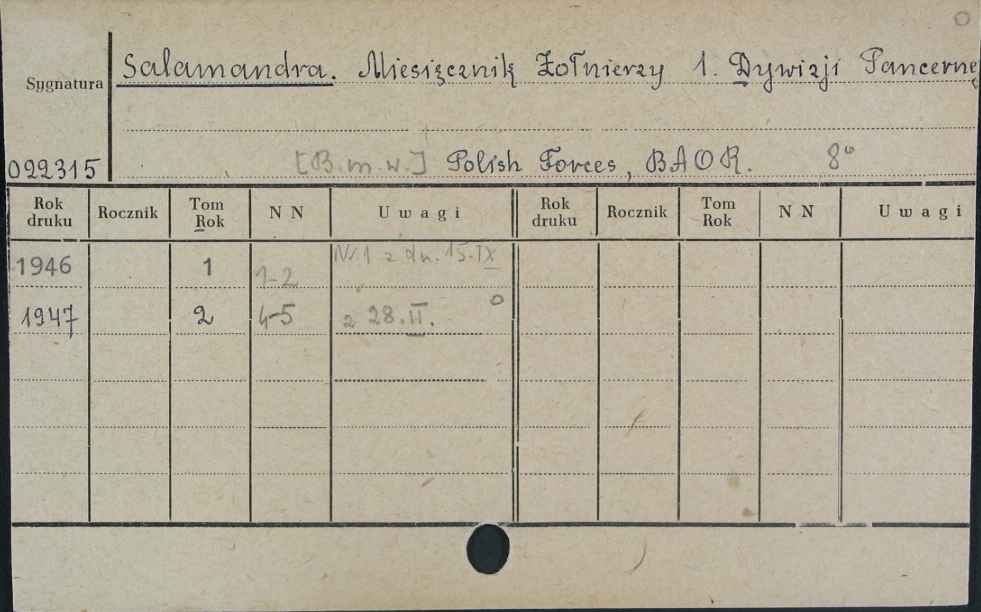 o
Sygnatura Salamandra. Miesięcznik Żołnierzy 1. Dywizji Pancernę
022315 [B. m. w.] Polish Forces, BAOR. 8°
Rok druku Rocznik Tom Rok N N Uwagi Rok druku Rocznik Tom Rok N N Uwagi
1946 1 1-2 Nr. 1 z dn. 15.IX
1947 2 4-5 z 28.II. o